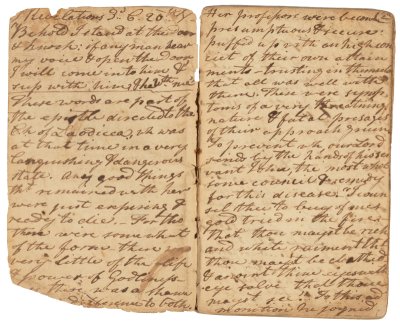 Revelations 3d. & 20th
Behold I stand at the door
& knock: if any man hear
my voice & open the door
I will come into him &
sup with him, & he with me
These words are part of
the epistle directed to the
Ch of Laodicea, wh was
at that time in a very
languishing & dangerous
state. Any good things
tht remained with her
were just expiring &
ready to die. For tho
there were somewhat
of the form there
very little of the life
& power of Godliness
there was a
to both
Her professors were become
presumptuous & secure:
puffed up with an high con
ceit of their own attain
ments trusting in them
that all was well with
them. These were symp
toms of a very threatning
nature & fatal presages
of their approaching ruin
To prevent wh our Lord
sends by the hand of his ser
vant John, the most whole
some council & remedy
for this disease. I coun
sel thee to buy of me
gold tried in the fire
that thou mayst be rich
and white raiment that
thou mayst be clothed
& anoint thine eyes with
eye salve that thou
mayst see. To this ad
monition He joyned